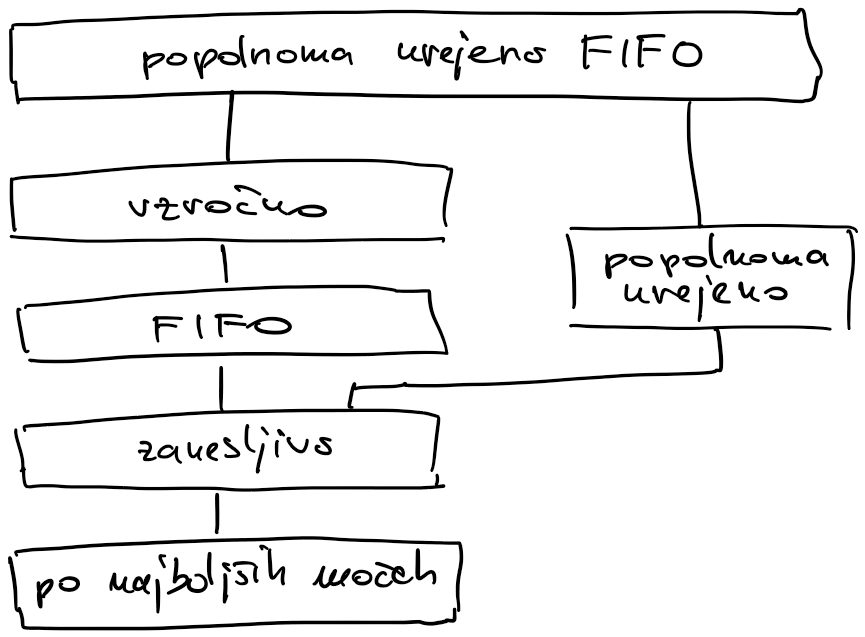 popolnoma urejeno FIFO
vzročno
popolnoma
urejeno
FIFO
zanesljivo
po najboljših močeh